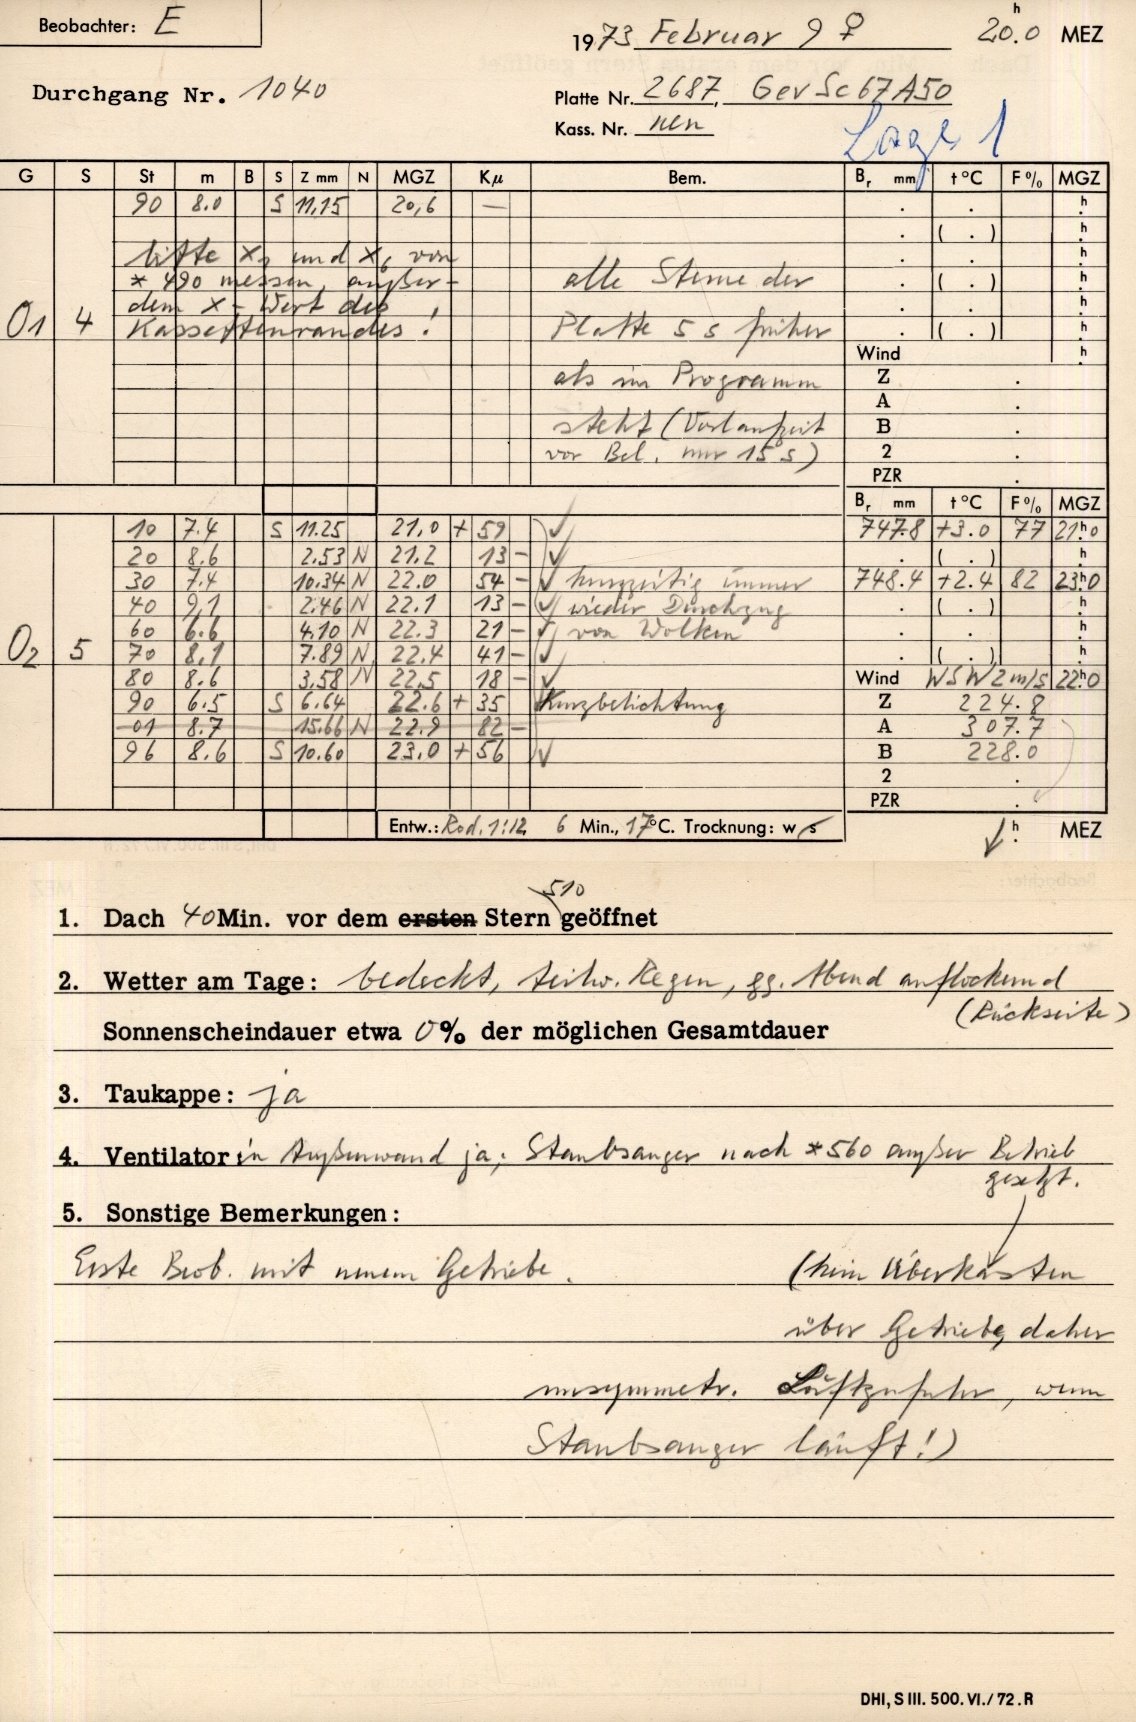 Beobachter: E
1973 Februar 9 ♀ 20.0 h MEZ
Durchgang Nr. 1040
Platte Nr. 2687, Gev Sc 67A50
Kass. Nr. neu
Lage 1
G S St m B S Z mm N MGZ Kµ Bem. Br mm t °C F % MGZ
90 8.0 S 11,15 20,6 — . . h
. ( . ) h
bitte x und x von . . h
* 490 messen, außer- alle Sterne der . ( . ) h
dem x-Wert des . . h
O1 4 Kassettenrandes! Platte 5 s früher . ( . ) h
Wind h
als im Programm Z .
A .
steht (Vorlaufzeit B .
vor Bel. nur 15 s) 2 .
PZR .
Br mm t °C F % MGZ
10 7.4 S 11.25 21,0 + 59 ✓ 747.8 +3.0 77 21h0
20 8.6 2.53 N 21.2 13 – ✓ . ( . ) h
30 7.4 10.34 N 22.0 54 – ✓ kurzzeitig immer 748.4 +2.4 82 23h0
40 9,1 2.46 N 22.1 13 – ✓ wieder Durchzug . ( . ) h
60 6.6 4.10 N 22.3 21 – ✓ von Wolken . . h
O2 5 70 8.1 7.89 N 22.4 41 – ✓ . ( . ) h
80 8.6 3.58 N 22.5 18 – ✓ Wind WSW 2 m/s 22h0
90 6.5 S 6.64 22.6 + 35 Kurzbelichtung Z 224.8
01 8.7 15.66 N 22.9 82 – A 307.7
96 8.6 S 10.60 23.0 + 56 ✓ B 228.0
2 .
PZR .
Entw.: Rod. 1:12 6 Min., 17°C. Trocknung: w/s h. MEZ
510
1. Dach 40 Min. vor dem ersten Stern geöffnet
2. Wetter am Tage: bedeckt, teilw. Regen, gg. Abend auflockernd
(Rückseite)
Sonnenscheindauer etwa 0% der möglichen Gesamtdauer
3. Taukappe: ja
4. Ventilator in Außenwand ja; Staubsauger nach *560 außer Betrieb
gesetzt.
5. Sonstige Bemerkungen:
Erste Beob. mit neuem Getriebe. (kein Überkasten
über Getriebe, daher
unsymmetr. Luftzufuhr, wenn
Staubsauger läuft!)
DHI, S III. 500. VI./72. R